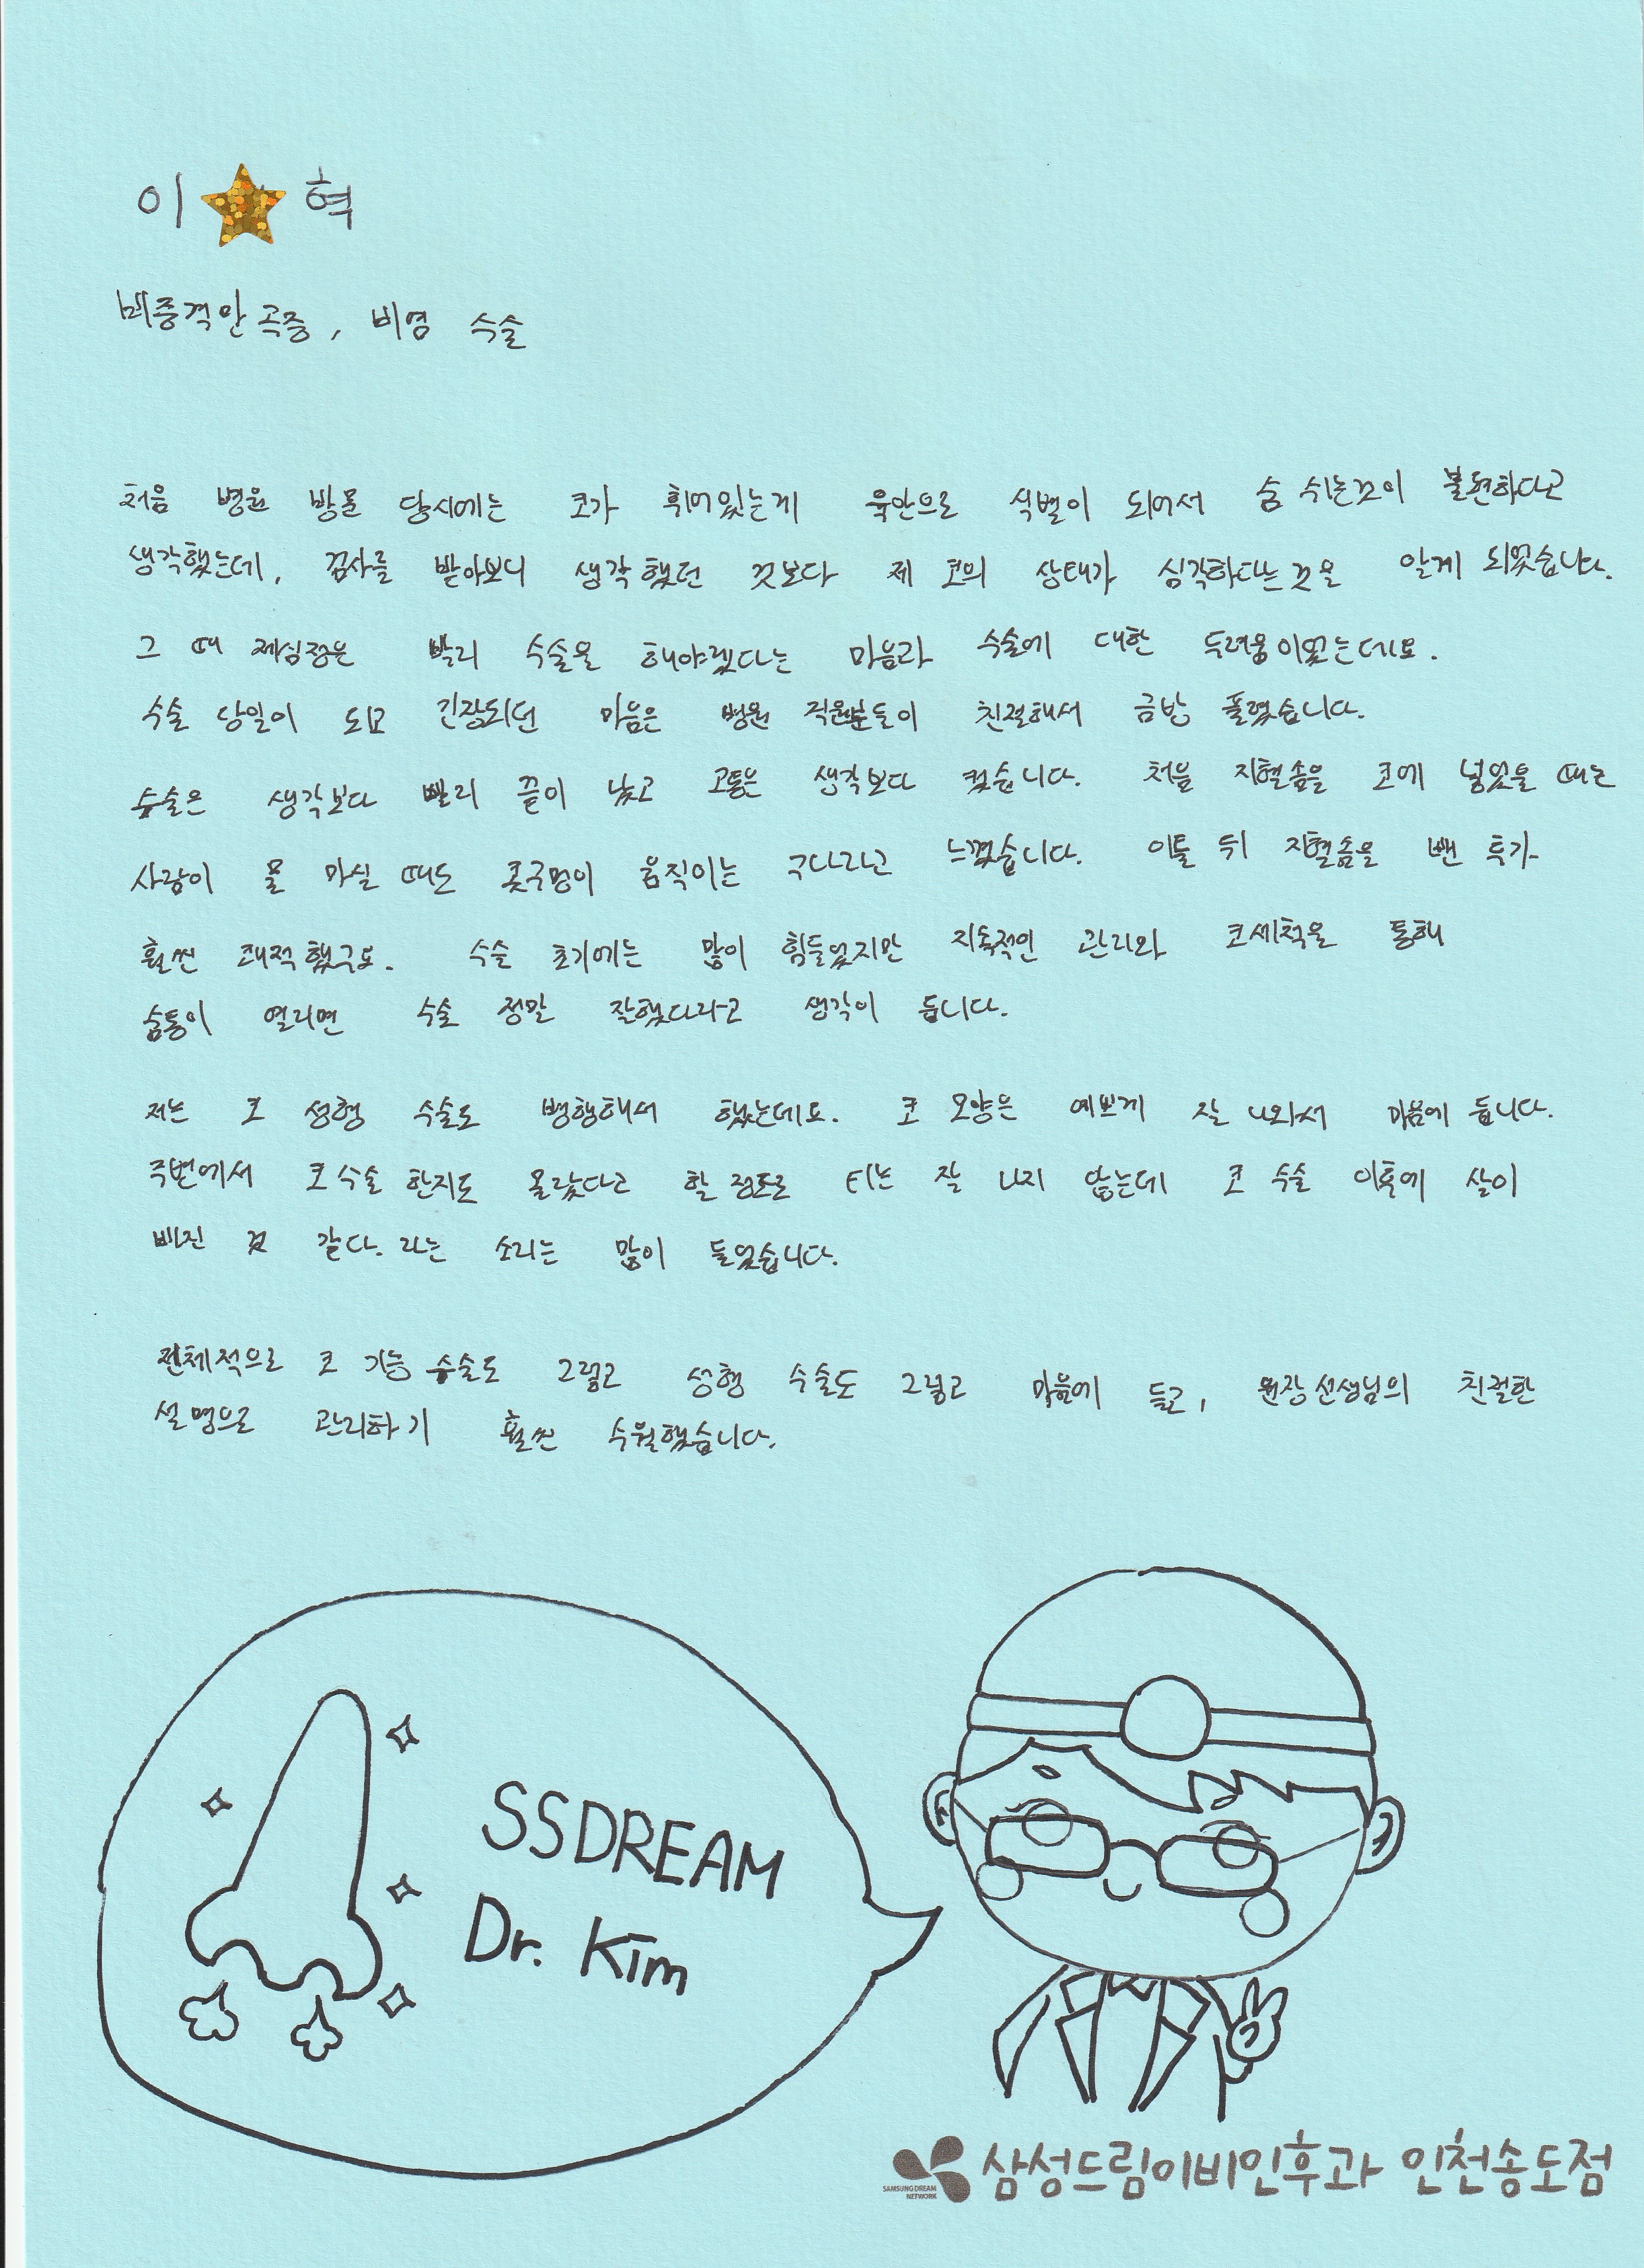 이 혁
비중격만곡증, 비염 수술
처음 병원 방문 당시에는 코가 휘어있는게 육안으로 식별이 되어서 숨 쉬는것이 불편하다고
생각했는데, 검사를 받아보니 생각했던 것보다 제 코의 상태가 심각하다는것을 알게 되었습니다.
그 때 제심정은 빨리 수술을 해야겠다는 마음과 수술에 대한 두려움이었는데요.
수술 당일이 되고 긴장되던 마음은 병원 직원분들이 친절해서 금방 풀렸습니다.
수술은 생각보다 빨리 끝이 났고 고통은 생각보다 컸습니다. 처음 지혈솜을 코에 넣었을 때는
사람이 물 마실 때도 콧구멍이 움직이는 구나라고 느꼈습니다. 이틀 뒤 지혈솜을 뺀 후가
훨씬 쾌적했구요. 수술 초기에는 많이 힘들었지만 지속적인 관리와 코세척을 통해
숨통이 열리면 수술 정말 잘했다라고 생각이 듭니다.
저는 코 성형 수술도 병행해서 했는데요. 코 모양은 예쁘게 잘 나와서 마음에 듭니다.
주변에서 코수술 한지도 몰랐다고 할 정도로 티는 잘 나지 않는데 코 수술 이후에 살이
빠진 것 같다. 라는 소리는 많이 들었습니다.
전체적으로 코 기능 수술도 그렇고 성형 수술도 그렇고 마음에 들고, 원장선생님의 친절한
설명으로 관리하기 훨씬 수월했습니다.
SSDREAM
Dr. Kim
SAMSUNG DREAM
NETWORK
삼성드림이비인후과 인천송도점